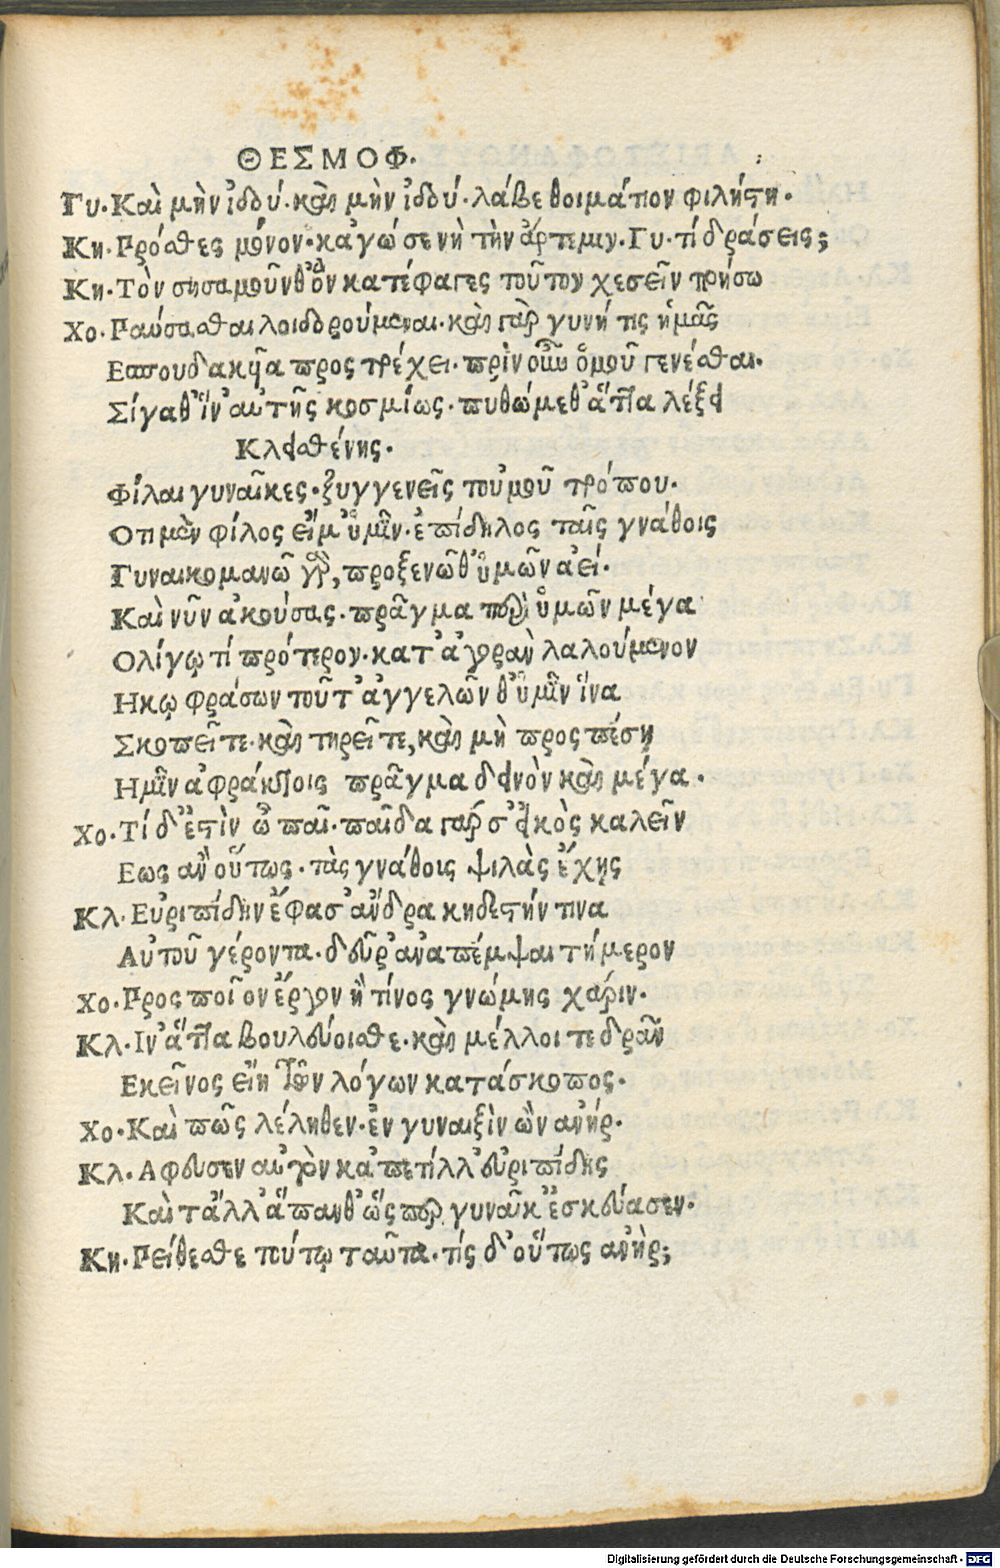 ΘΕΣΜΟΦ.
Γυ·Καὶ μὴν ἰδού·καὶ μὴν ἰδού·λάβε θοιμάτιον φιλήστη·
Κη·Ρρόσθες μόνον·κἀγώ σε νὴ τὴν ἄρτεμιν·Γυ·τί δράσεις;
Κη·Τὸν σησαμοῦνθ ὃν κατέφαγες τοῦτον χεσεῖν ποιήσω
Χο·Ραύσασθαι λοιδορούμεναι·καὶ γὰρ γυνή τις ἡμᾶς
Εσπουδακῆα προς τρέχει·πρὶν οὖν ὁμοῦ γενέσθαι·
Σίγαθ' ἵν' αὐτῆς κοσμίως·πυθώμεθ' ἅττα λέξει
Κλεισθένης.
Φίλαι γυναῖκες·ξυγγενεῖς τοὐμοῦ τρόπου·
Οτι μὲν φίλος εἴμ' ὑμῖν·ἐπίδηλος ταῖς γνάθοις
Γυναικομανῶ γὰρ, προξενῶ θ' ὑμῶν ἀεί·
Καὶ νῦν ἀκούσας·πρᾶγμα περὶ ὑμῶν μέγα
Ολίγῳ τί πρότερον·κατ' ἀγορὰν λαλούμενον
Ηκῳ φράσων τοῦτ' ἀγγελῶν θ' ὑμῖν ἵνα
Σκοπεῖτε·καὶ τηρεῖτε, καὶ μὴ προς πέσῃ
Ημῖν ἀφράκτοις πρᾶγμα δεινὸν καὶ μέγα·
Χο·Τί δ' ἐστὶν ὦ παῖ·παῖδα γάρ σ' εἰκὸς καλεῖν
Εως ἂν οὕτως·τὰς γνάθοις ψιλὰς ἔχῃς
Κλ·Εὐριπίδην ἔφασ' ἄνδρα κηδεστήν τινα
Αὐτοῦ γέροντα·δεῦρ' ἀναπέμψαι τήμερον
Χο·Ρρος ποῖον ἔργον ἢ τίνος γνώμης χάριν·
Κλ·Ιν' ἅττα βουλεύοισθε·καὶ μέλλοιτε δρᾶν
Εκεῖνος εἴη τῶν λόγων κατάσκοπος·
Χο·Καὶ πῶς λέληθεν·ἐν γυναιξὶν ὢν ἀνήρ·
Κλ·Αφευσεν αὐτὸν κἀπέτιλλ' εὐριπίδης
Καὶ τἄλλ' ἅπανθ' ὥς περ γυναῖκ' ἐσκεύασεν·
Κη·Ρείθεσθε τούτῳ ταῦτα·τίς δ' οὕτως ἀνὴρ;
Digitalisierung gefördert durch die Deutsche Forschungsgemeinschaft - DFG